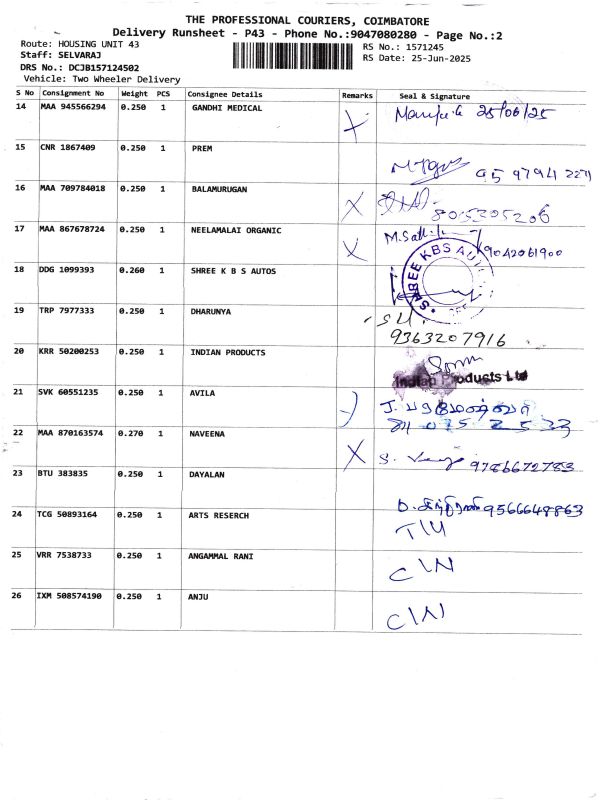 THE PROFESSIONAL COURIERS, COIMBATORE
Delivery Runsheet - P43 - Phone No.:9047080280 - Page No.:2
Route: HOUSING UNIT 43
Staff: SELVARAJ
DRS No.: DCJB157124502
Vehicle: Two Wheeler Delivery
RS No.: 1571245
RS Date: 25-Jun-2025
S No Consignment No Weight PCS Consignee Details Remarks Seal & Signature
14 MAA 945566294 0.250 1 GANDHI MEDICAL 25/06/25
15 CNR 1867409 0.250 1 PREM
16 MAA 709784018 0.250 1 BALAMURUGAN X 8053205206
17 MAA 867678724 0.250 1 NEELAMALAI ORGANIC 9042061900
18 DDG 1099393 0.260 1 SHREE K B S AUTOS
SHREE KBS AUTO
19 TRP 7977333 0.250 1 DHARUNYA
9363207916
20 KRR 50200253 0.250 1 INDIAN PRODUCTS
Indian Products Ltd
21 SVK 60551235 0.250 1 AVILA
22 MAA 870163574 0.270 1 NAVEENA X 9786672783
23 BTU 383835 0.250 1 DAYALAN
9566648863
24 TCG 50893164 0.250 1 ARTS RESERCH
25 VRR 7538733 0.250 1 ANGAMMAL RANI C\N
26 IXM 508574190 0.250 1 ANJU C\N